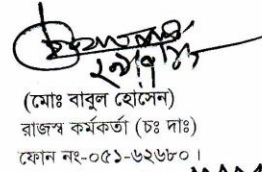 (মোঃ বাবুল হোসেন)
রাজস্ব কর্মকর্তা (চঃ দাঃ)
ফোন নং-০৫১-৬২৬৮০।